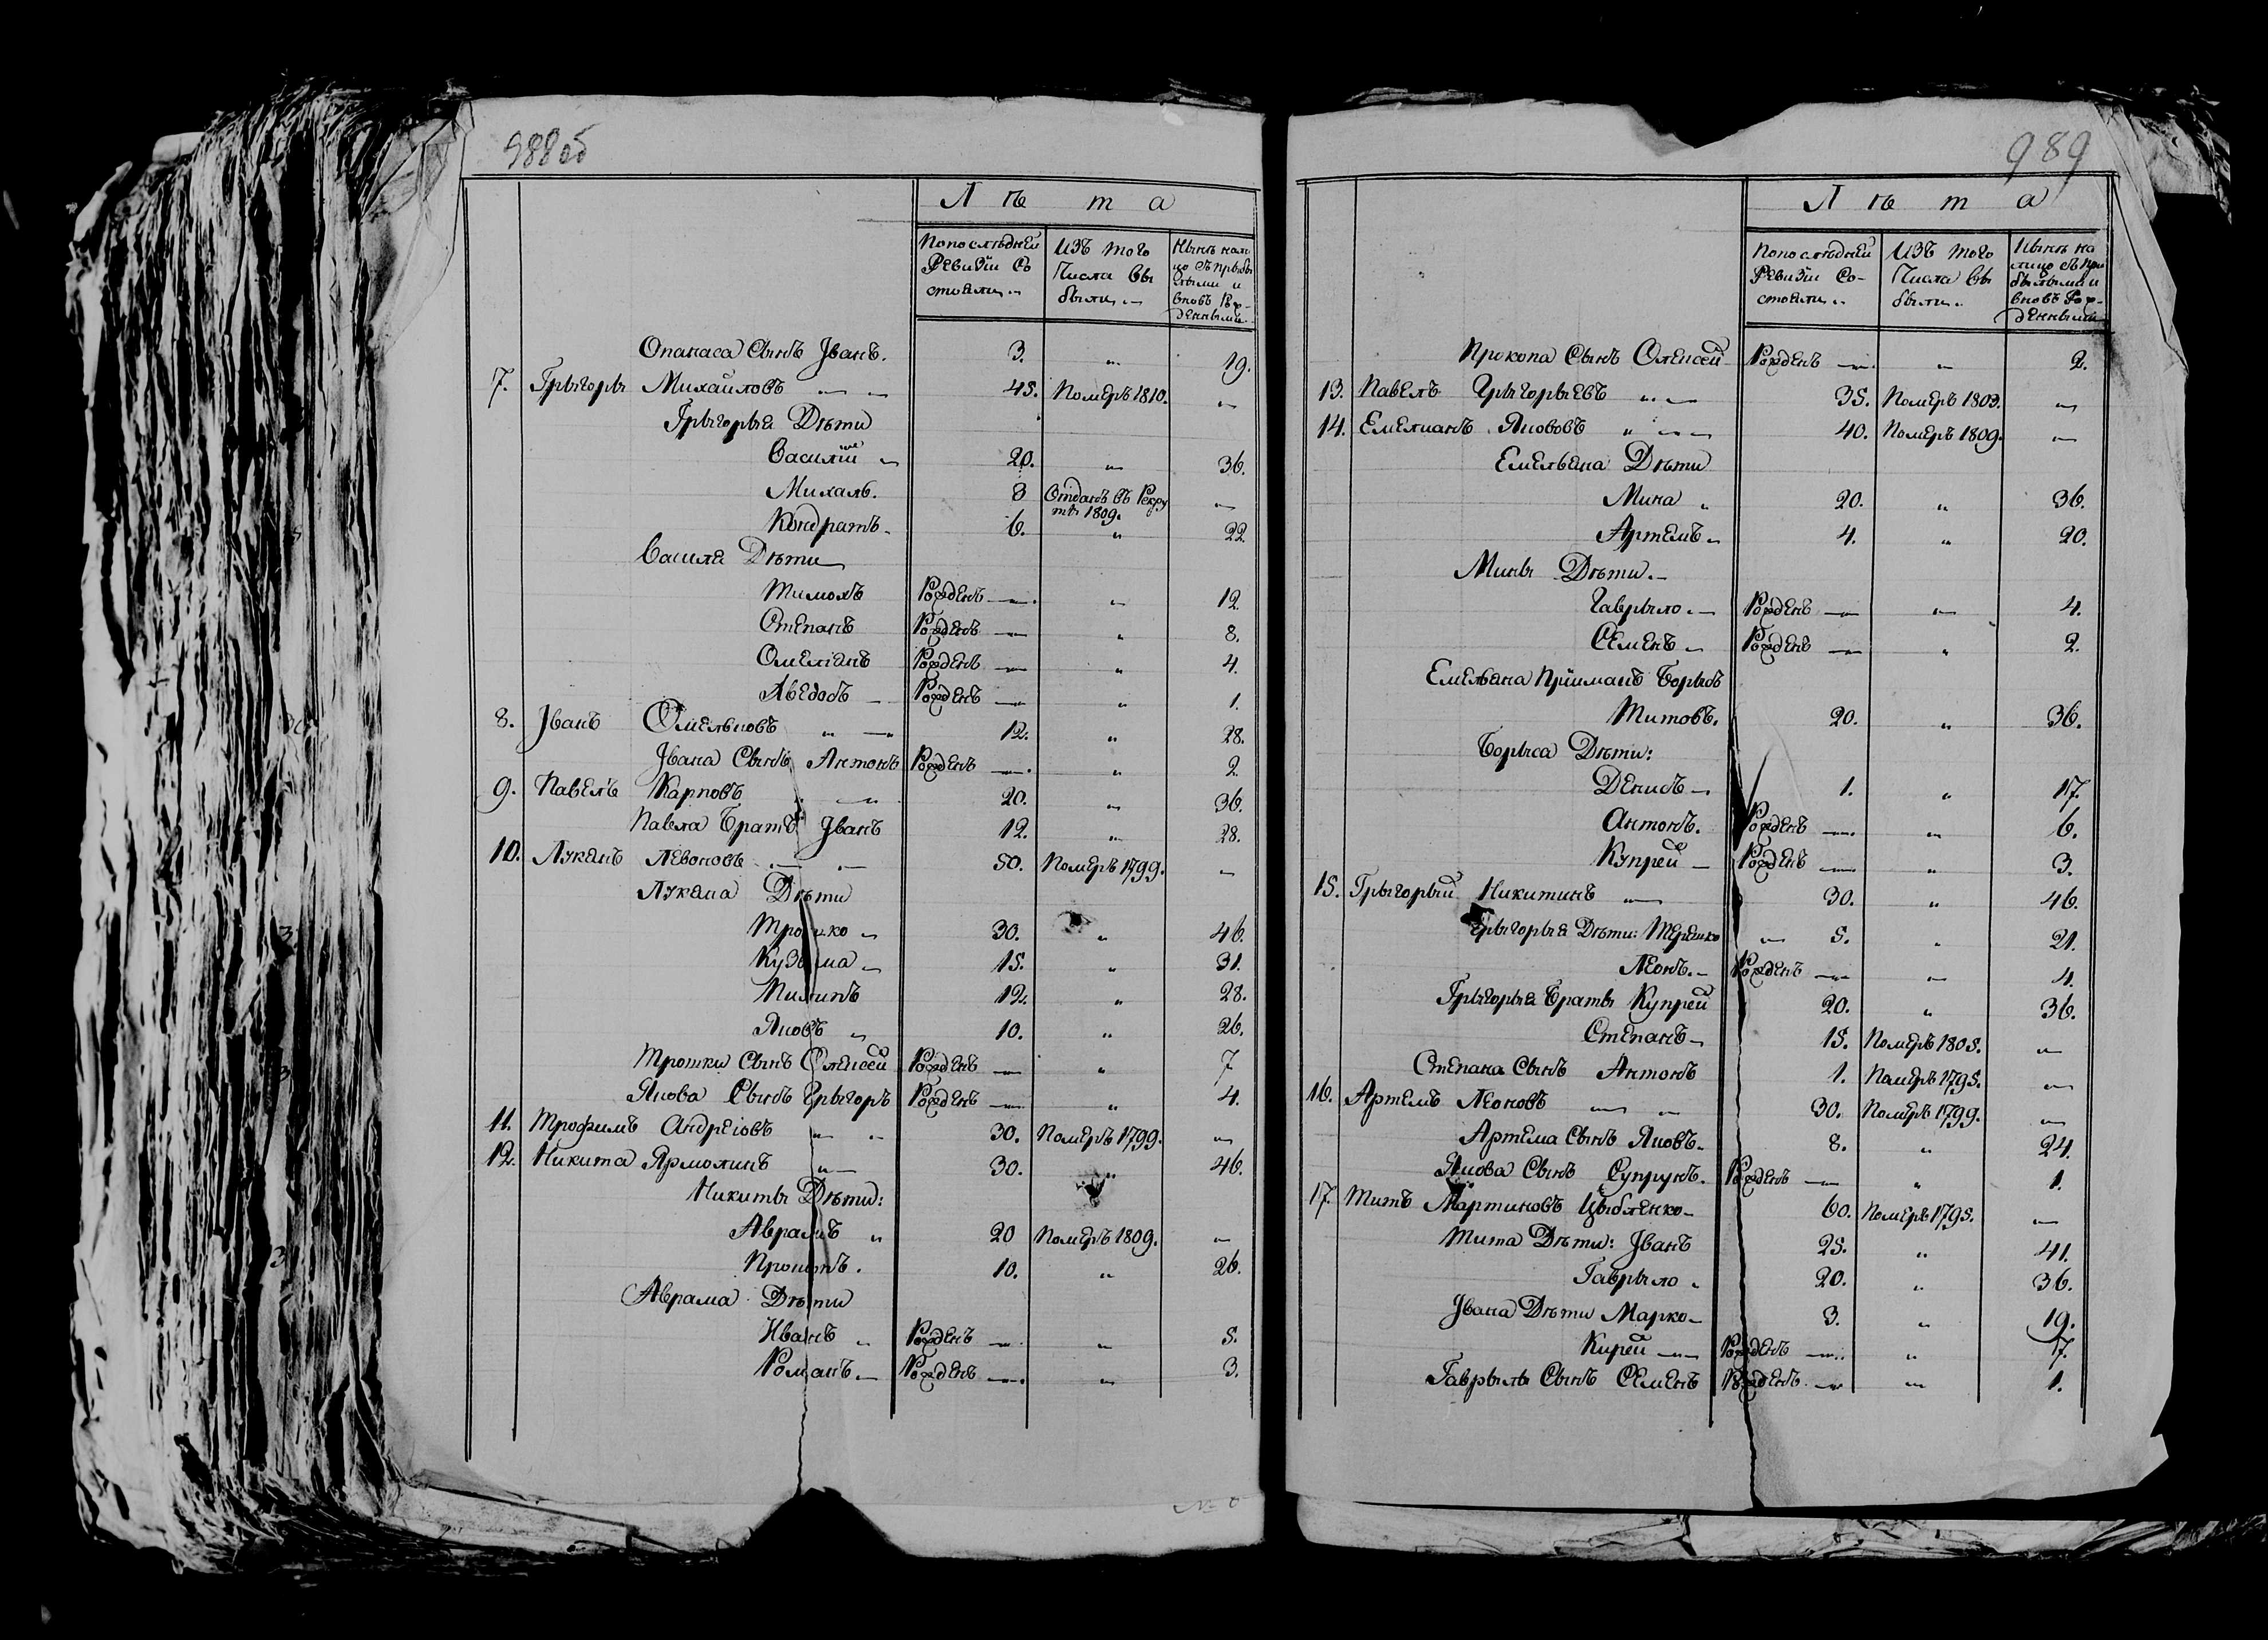 988об
Лѣта
По последнѣй Ревизіи Состояли
Изъ того Числа Выбыли
Нынѣ налицо съ прыбылыми и вновь Рожденными
Опанаса Сынъ Іванъ. 3. „ 19.
7. Грыгоры Михайловъ 45. Померъ 1810. „
Грыгорыя Дѣти
Василій 20. „ 36.
Михаль. 8 Отданъ въ Рекруты 1809. „
Кондратъ. 6. „ 22.
Василя Дѣти
Тимохъ Рожденъ „ 12.
Степанъ Рожденъ „ 8.
Омелянъ Рожденъ „ 4.
Авсдось Рожденъ „ 1.
8. Іванъ Омельяновъ 12. „ 28.
Івана Сынъ Антонъ Рожденъ „ 2.
9. Павелъ Карповъ 20. „ 36.
Павла Братъ Іванъ 12. „ 28.
10. Лукянъ Левоновъ 50. Померъ 1799. „
Лукяна Дѣти
Трошко 30. „ 46.
Кузьма 15. „ 31.
Пилипъ 12. „ 28.
Яковъ 10. „ 26.
Трошки Сынъ Олексей Рожденъ „ 7
Якова Сынъ Грыгоръ Рожденъ „ 4.
11. Трофимъ Андреіовъ 30. Померъ 1799. „
12. Никита Ярмолинъ 30. „ 46.
Никиты Дѣти:
Аврамъ 20 Померъ 1809. „
Прокопъ. 10. „ 26.
Аврама Дѣти
Иванъ Рожденъ „ 5.
Романъ Рожденъ „ 3.
989
Лѣта
По последнѣй Ревизіи Состояли
Изъ того Числа Выбыли
Нынѣ налицо съ прибылыми и вновь Рожденными
Прокопа Сынъ Олексей Рожденъ „ 2.
13. Павелъ Грыгорыевъ 35. Померъ 1803. „
14. Емелианъ Якововъ 40. Померъ 1809. „
Емельяна Дѣти
Мина 20. „ 36.
Артемъ 4. „ 20.
Мины Дѣти.
Гаврыло Рожденъ „ 4.
Семенъ Рожденъ „ 2.
Емельяна Прііманъ Борысъ
Титовъ. 20. „ 36.
Борыса Дѣти:
Денисъ 1. „ 17.
Антонъ. Рожденъ „ 6.
Купрей Рожденъ „ 3.
15. Грыгорый Никитинъ 30. „ 46.
Грыгорыя Дѣти: Терешко 5. „ 21.
Леонъ. Рожденъ „ 4.
Грыгорыя Браты Купрей 20. „ 36.
Степанъ 15. Померъ 1805. „
Степана Сынъ Антонъ 1. Померъ 1795. „
16. Артемъ Леоновъ 30. Померъ 1799. „
Артема Сынъ Яковъ. 8. „ 24.
Якова Сынъ Супрунъ. Рожденъ „ 1.
17. Титъ Мартиновъ Цыбленко 60. Померъ 1795. „
Тита Дѣти: Іванъ 25. „ 41.
Гаврыло 20. „ 36.
Івана Дѣти Марко 3. „ 19.
Кирей Рожденъ „ 7.
Гаврылы Сынъ Семенъ Рожденъ „ 1.